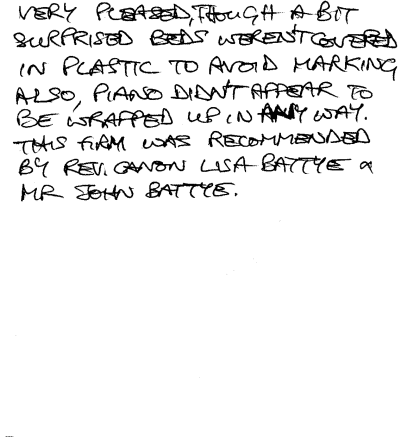 VERY PLEASED, THOUGH A BIT
SURPRISED BEDS WEREN'T COVERED
IN PLASTIC TO AVOID MARKING
ALSO, PIANO DIDN'T APPEAR TO
BE WRAPPED UP IN ANY WAY.
THIS FIRM WAS RECOMMENDED
BY REV. CANON LISA BATTYE &
MR JOHN BATTYE.